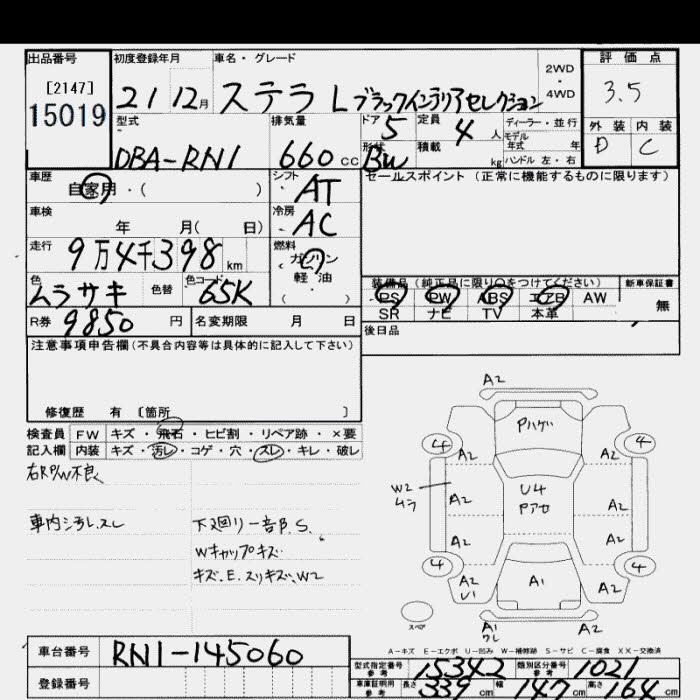 出品番号 初度登録年月 車名・グレード 評価点
[2147]
15019
21 12月 ステラ L ブラックインテリアセレクション 2WD・4WD 3.5
型式 排気量 ドア 5 定員 4人 ディーラー・並行 外装 内装
DBA-RN1 660cc 形状 BW 積載 kg モデル年式 年 D C
ハンドル 左・右
車歴 自家用・( ) シフト AT セールスポイント(正常に機能するものに限ります)
車検 年 月( 日) 冷房 AC
走行 9万4千398km 燃料 ガソリン・軽油・( )
色 ムラサキ 色替 色コード 65K 装備品(純正品に限り○をつけてください) 新車保証書
PS PW ABS エアB AW 無
R券 9850円 名変期限 月 日 SR ナビ TV 本革
後日品
注意事項申告欄(不具合内容等は具体的に記入して下さい)
修復歴 有 〔箇所 〕
検査員 FW キズ・飛石・ヒビ割・リペア跡・×要
記入欄 内装 キズ・汚レ・コゲ・穴・スレ・キレ・破レ
右RP/W不良
車内シ汚レ、スレ 下廻リ一部P.S.
Wキャップキズ
キズ.E.スリキズ.W2
A2
Pハゲ
4 A2 A2 4
W2 ムラ A2 U4 Pアセ A2
A2 A2
4 A2 U1 A1 A2 4
スペア A1 ワレ A2
A-キズ E-エクボ U-凹み W-補修跡 S-サビ C-腐食 XX-交換済
車台番号 RN1-145060
型式指定番号 参考 15342 類別区分番号 参考 1021
登録番号 車庫証明用 参考 長さ 339cm 幅 147cm 高さ 164cm